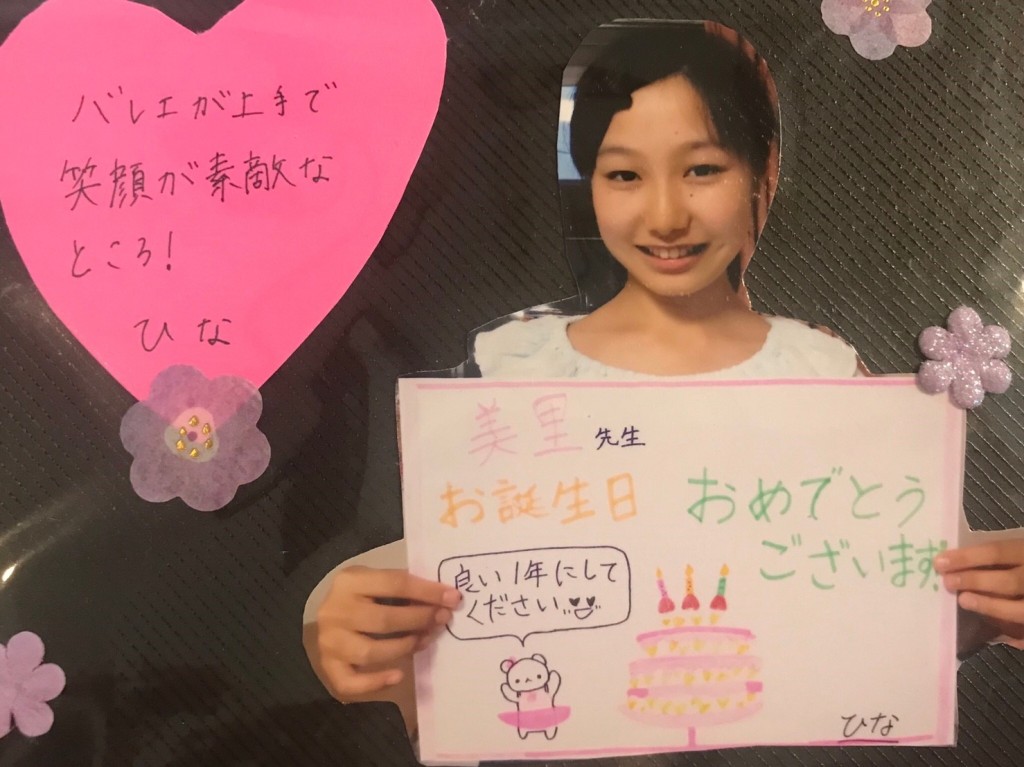 バレエが上手で
笑顔が素敵な
ところ!
ひな
美里 先生
お誕生日 おめでとう
ございます!
良い1年にして
ください
ひな